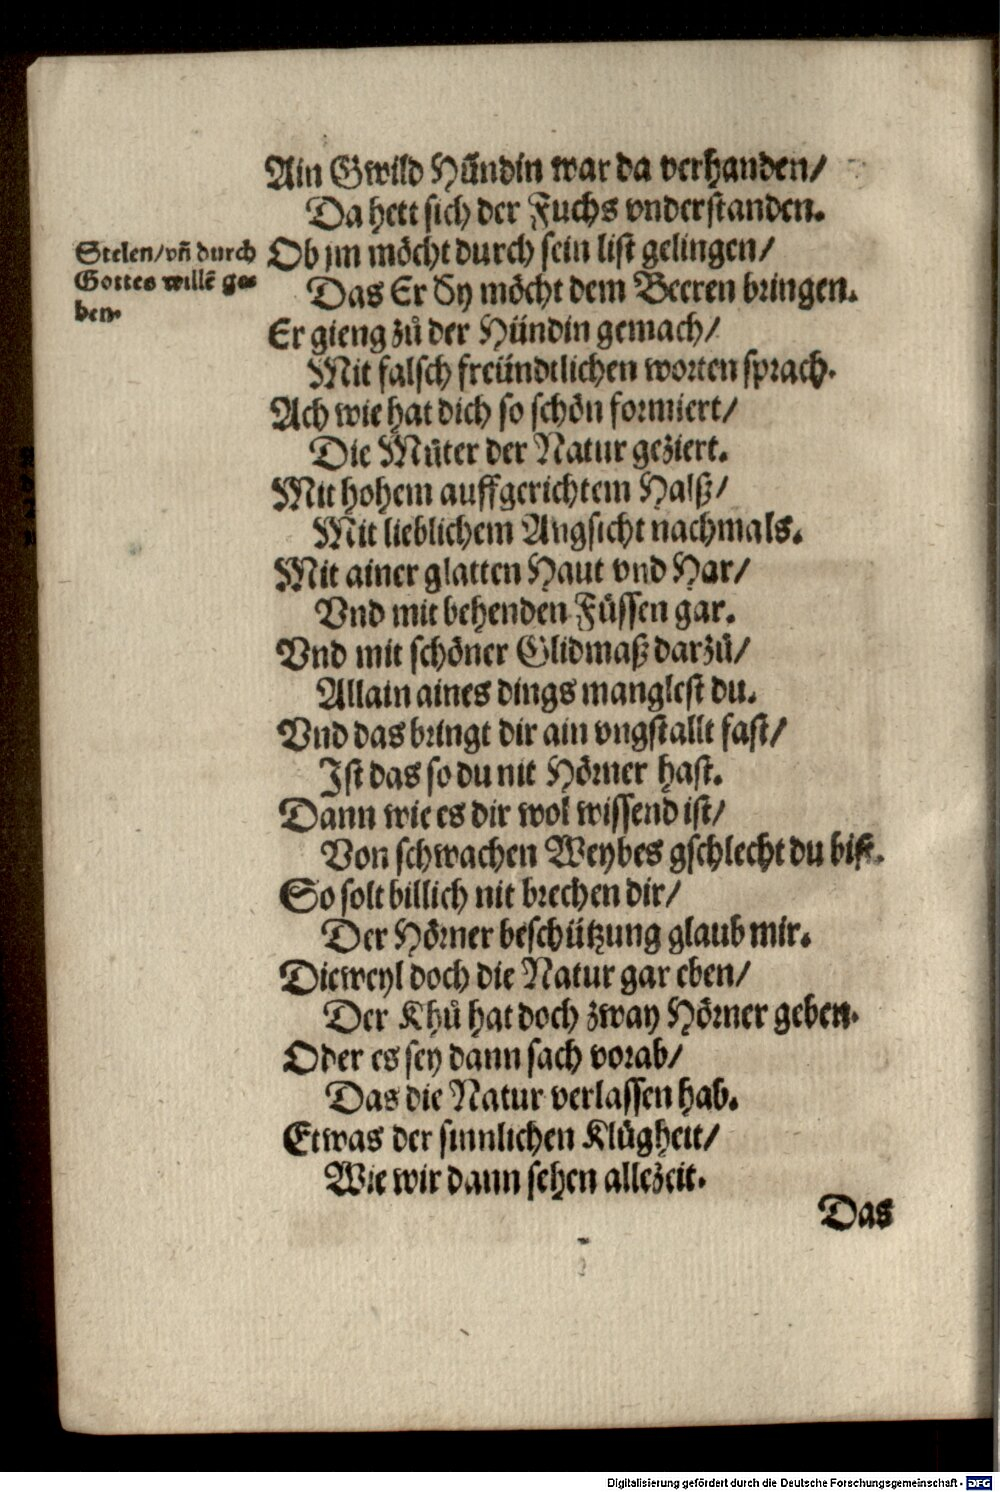 Ain Gwild Hündin war da verhanden/
Da hett sich der Fuchs vnderstanden.
Stelen/vñ durch
Gottes willẽ ge-
ben.
Ob jm möcht durch sein list gelingen/
Das Er Sy möcht dem Beeren bringen.
Er gieng zů der Hündin gemach/
Mit falsch freündtlichen worten sprach.
Ach wie hat dich so schön formiert/
Die Můter der Natur geziert.
Mit hohem auffgerichtem Halß/
Mit lieblichem Angsicht nachmals.
Mit ainer glatten Haut vnd Har/
Vnd mit behenden Füssen gar.
Vnd mit schöner Glidmaß darzů/
Allain aines dings manglest du.
Vnd das bringt dir ain vngstallt fast/
Ist das so du nit Hörner hast.
Dann wie es dir wol wissend ist/
Von schwachen Weybes gschlecht du bist.
So solt billich nit brechen dir/
Der Hörner beschützung glaub mir.
Dieweyl doch die Natur gar eben/
Der Khů hat doch zway Hörner geben.
Oder es sey dann sach vorab/
Das die Natur verlassen hab.
Etwas der sinnlichen Klůgheit/
Wie wir dann sehen allezeit.
Das
Digitalisierung gefördert durch die Deutsche Forschungsgemeinschaft - DFG